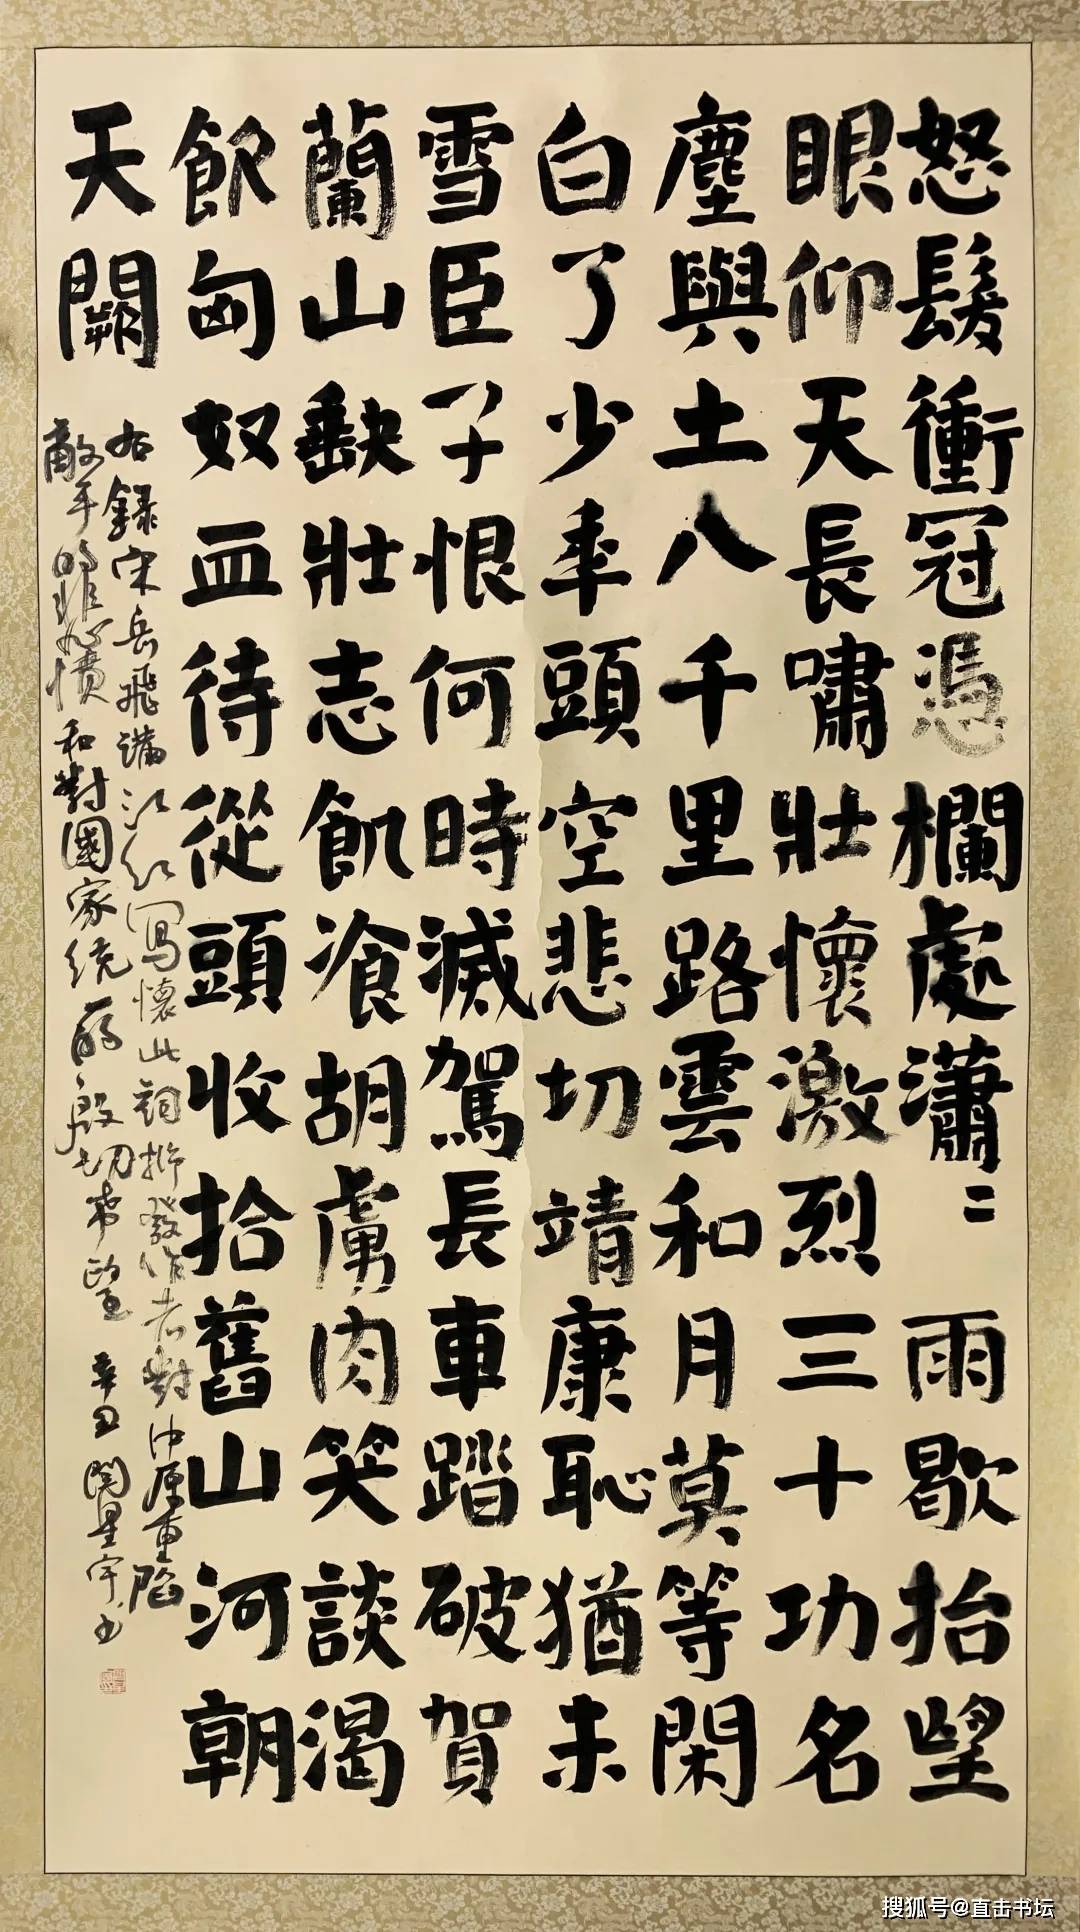 怒髮衝冠憑欄處瀟二雨歇抬望
眼仰天長嘯壯懷激烈三十功名
塵與土八千里路雲和月莫等閑
白了少年頭空悲切靖康恥猶未
雪臣子恨何時滅駕長車踏破賀
蘭山缺壯志飢飡胡虜肉笑談渴
飲匈奴血待從頭收拾舊山河朝
天闕
右錄宋岳飛滿江紅寫懷此詞抒發作者對中原重陷
敵手的悲憤和對國家統一的殷切希望 辛丑 関星宇书
搜狐号@直击书坛